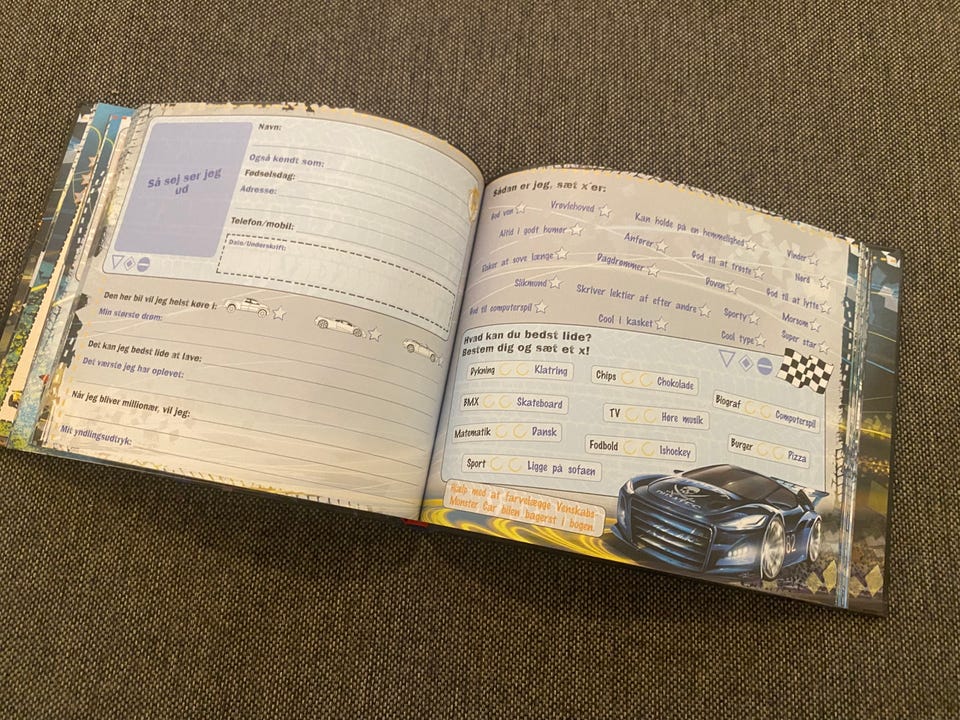 Så sej ser jeg
ud
Navn:
Også kendt som:
Fødselsdag:
Adresse:
Telefon/mobil:
Dato/Underskrift:
Den her bil vil jeg helst køre i:
Min største drøm:
Det kan jeg bedst lide at lave:
Det værste jeg har oplevet:
Når jeg bliver millionær, vil jeg:
Mit yndlingsudtryk:
Sådan er jeg, sæt x'er:
God ven Vrøvlehoved Kan holde på en hemmelighed Vinder
Altid i godt humør Anfører God til at trøste Nørd
Elsker at sove længe Dagdrømmer Doven God til at lytte
Slikmund Skriver lektier af efter andre Sporty Morsom
God til computerspil Cool i kasket Cool type Super star
Hvad kan du bedst lide?
Bestem dig og sæt et x!
Dykning Klatring Chips Chokolade Biograf Computerspil
BMX Skateboard TV Høre musik
Matematik Dansk Fodbold Ishockey Burger Pizza
Sport Ligge på sofaen
Hjælp med at farvelægge Venskabs-
Monster Car bilen bagerst i bogen.
62